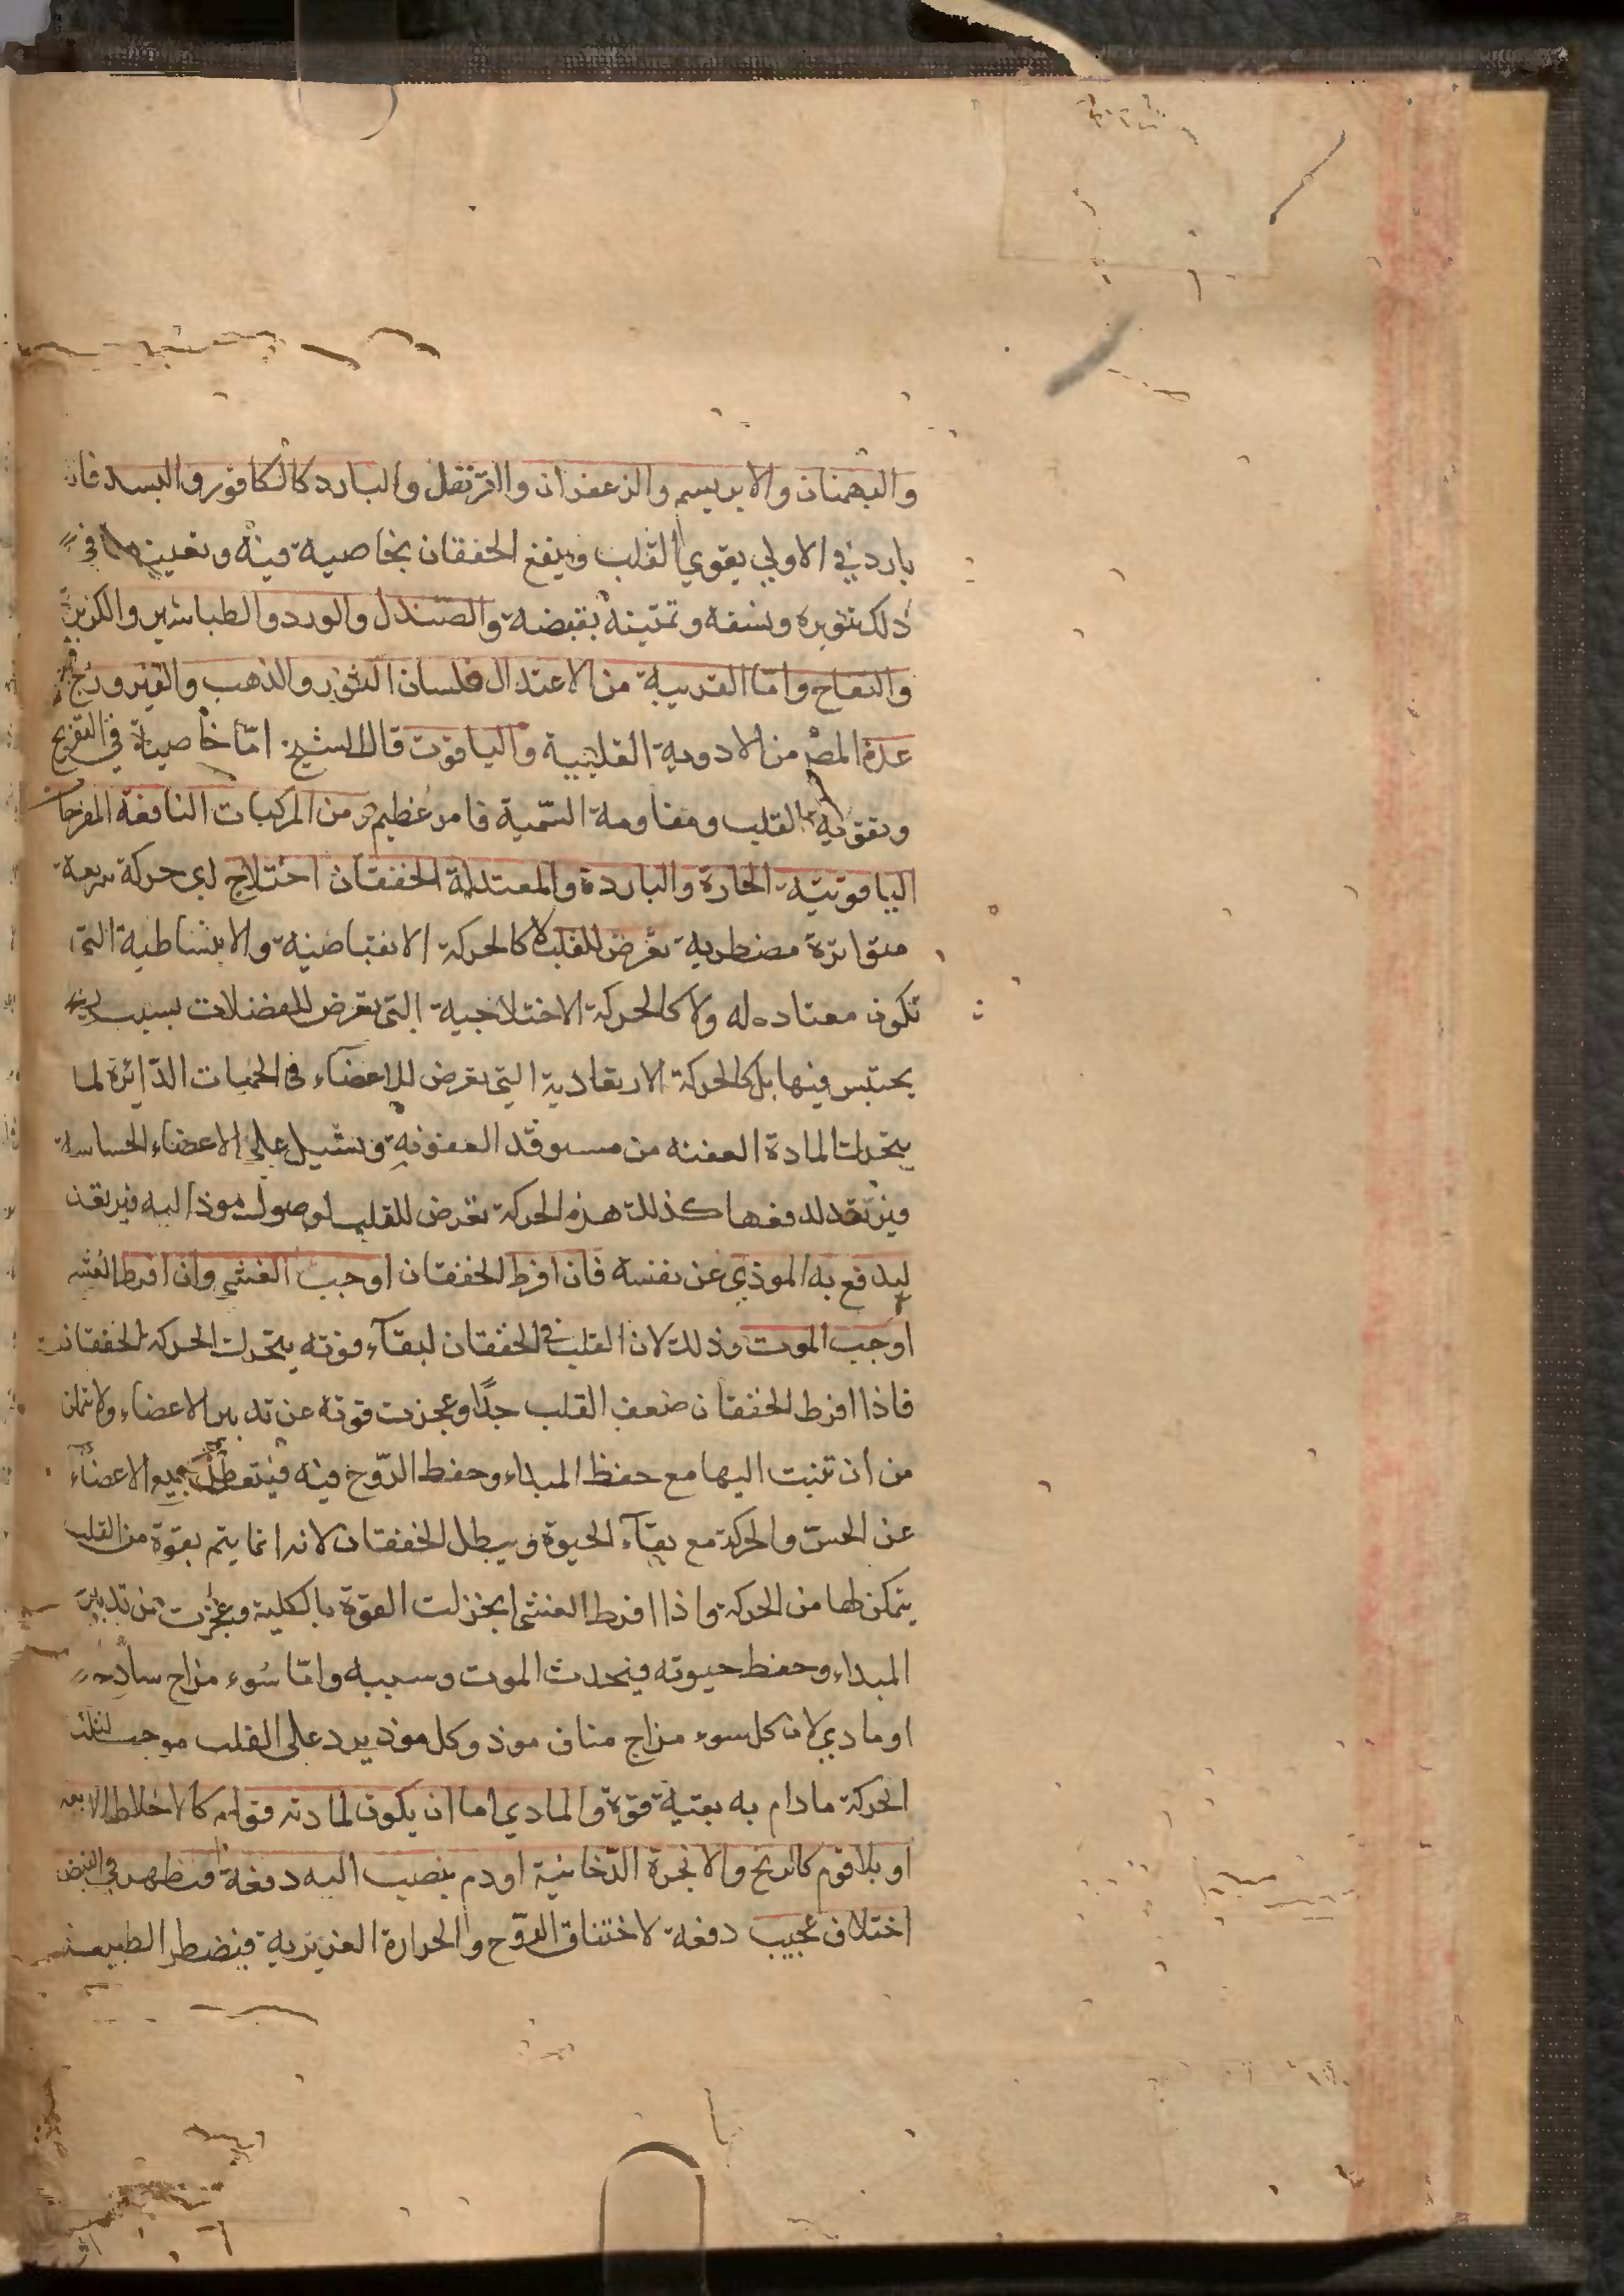 والبهمنان والابريسم والزعفران والقرنفل والبارد كالكافور والبسد فانه
بارد في الاولى يقوي القلب وينفع الخفقان بخاصية فيه وتعينها في
ذلك تنويره ونشفه وتمتينه بقبضه والصندل والورد والطباشير والكزبرة
والتفاح واما القريبة من الاعتدال فلسان الثور والذهب والفيروزج
عده المص من الادوية القلبية والياقوت قال الشيخ اما خاصيته في التفريح
وتقوية القلب ومقاومة السمية فامر عظيم ومن المركبات النافعة المفرحات
الياقوتية الحارة والباردة والمعتدلة الخفقان اختلاج اى حركة سريعة
متواترة مضطربة تعرض للقلب لا كالحركة الانقباضية والانبساطية التي
تكون معتاده له ولا كالحركة الاختلاجية التي تعرض للعضلات بسبب ريح
يحتبس فيها بل كالحركة الارتعادية التي تعرض للاعضاء في الحميات الدائرة لما
يتحرك المادة العفنه من مستوقد العفونه وتسيل على الاعضاء الحساسة
فيرتعد لدفعها كذلك هذه الحركة تعرض للقلب لوصول موذ اليه فيرتعد
ليدفع به الموذي عن نفسه فان افرط الخفقان اوجب الغشي وان افرط الغشي
اوجب الموت وذلك لان القلب في الخفقان لبقآء قوته يتحرك الحركة الخفقانية
فاذا افرط الخفقان ضعف القلب جدًا وعجزت قوته عن تدبير الاعضاء ولا تتمكن
من ان تنبت اليها مع حفظ المبداء وحفظ الروح فيه فيتعطل جميع الاعضاء
عن الحس والحركة مع بقآء الحيوة ويبطل الخفقان لانه انما يتم بقوة من القلب
يتمكن لها من الحركة واذا افرط الغشي انخزلت القوة بالكلية وعجزت من تدبير
المبداء وحفظ حيوته فيحدث الموت وسببه واما سوء مزاج ساذج
او مادي لان كل سوء مزاج مناف موذ وكل موذ يرد على القلب موجب لتلك
الحركة مادام به بقية قوة والمادي اما ان يكون لمادته قوام كالاخلاط الاربعة
او بلا قوام كالريح والابخرة الدخانية او دم ينصب اليه دفعة فيظهر في النبض
اختلاف عجيب دفعة لاختناق الروح والحرارة الغريزية فيضطر الطبيعة